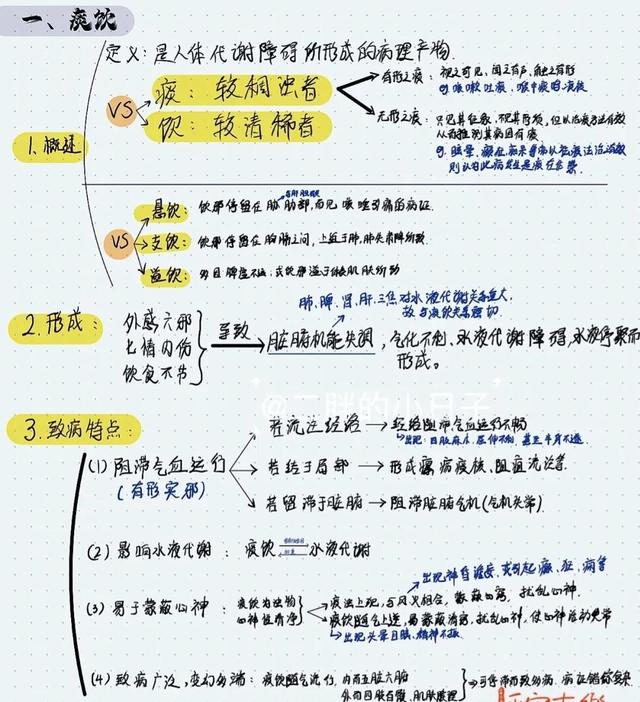 一、痰饮
定义：是人体代谢障碍所形成的病理产物.
1.概述
VS
痰：较稠浊者
饮：较清稀者
有形之痰：视之可见，闻之有声，触之有形
咳嗽吐痰，喉中痰鸣
无形之痰：只见其征象，不见其形质，但以治痰方法有效
从而推测其病因有痰
眩晕、癫狂
VS
悬饮：饮邪停留在胁肋部，而见咳唾引痛的病证.
支饮：饮邪停留在胸膈之间，上逆于肺，肺失肃降所致
溢饮：
2.形成：
外感六邪
七情内伤
饮食不节
导致
脏腑机能失调，气化不利、水液代谢障碍，水液停聚而
形成。
肺、脾、肾、肝、三焦对水液代谢关系重大，
故与痰饮关系密切
@二胖的小日子
3.致病特点：
(1)阻滞气血运行
(有形实邪)
若流注经络
经络阻滞气血运行不畅
出现：肢体麻木、屈伸不利，甚至半身不遂
若结于局部
形成瘰疬痰核、阻疽流注等
若留滞于脏腑
阻滞脏腑气机(气机失常)
(2)影响水液代谢：痰饮
水液代谢
(3)易于蒙蔽心神：痰饮为浊物
心神性清净
出现神昏谵妄，或引起癫、狂、痫等
痰浊上犯，与风火相合，蒙蔽心窍，扰乱心神.
痰饮随气上逆，易蒙蔽清窍，扰乱心神，使心神活动失常
出现头晕目眩、精神不振
(4)致病广泛，变幻多端：痰饮随气流行
内而五脏六腑
外而四肢百骸、肌肤腠理
可停滞而致多病，病证错综复杂